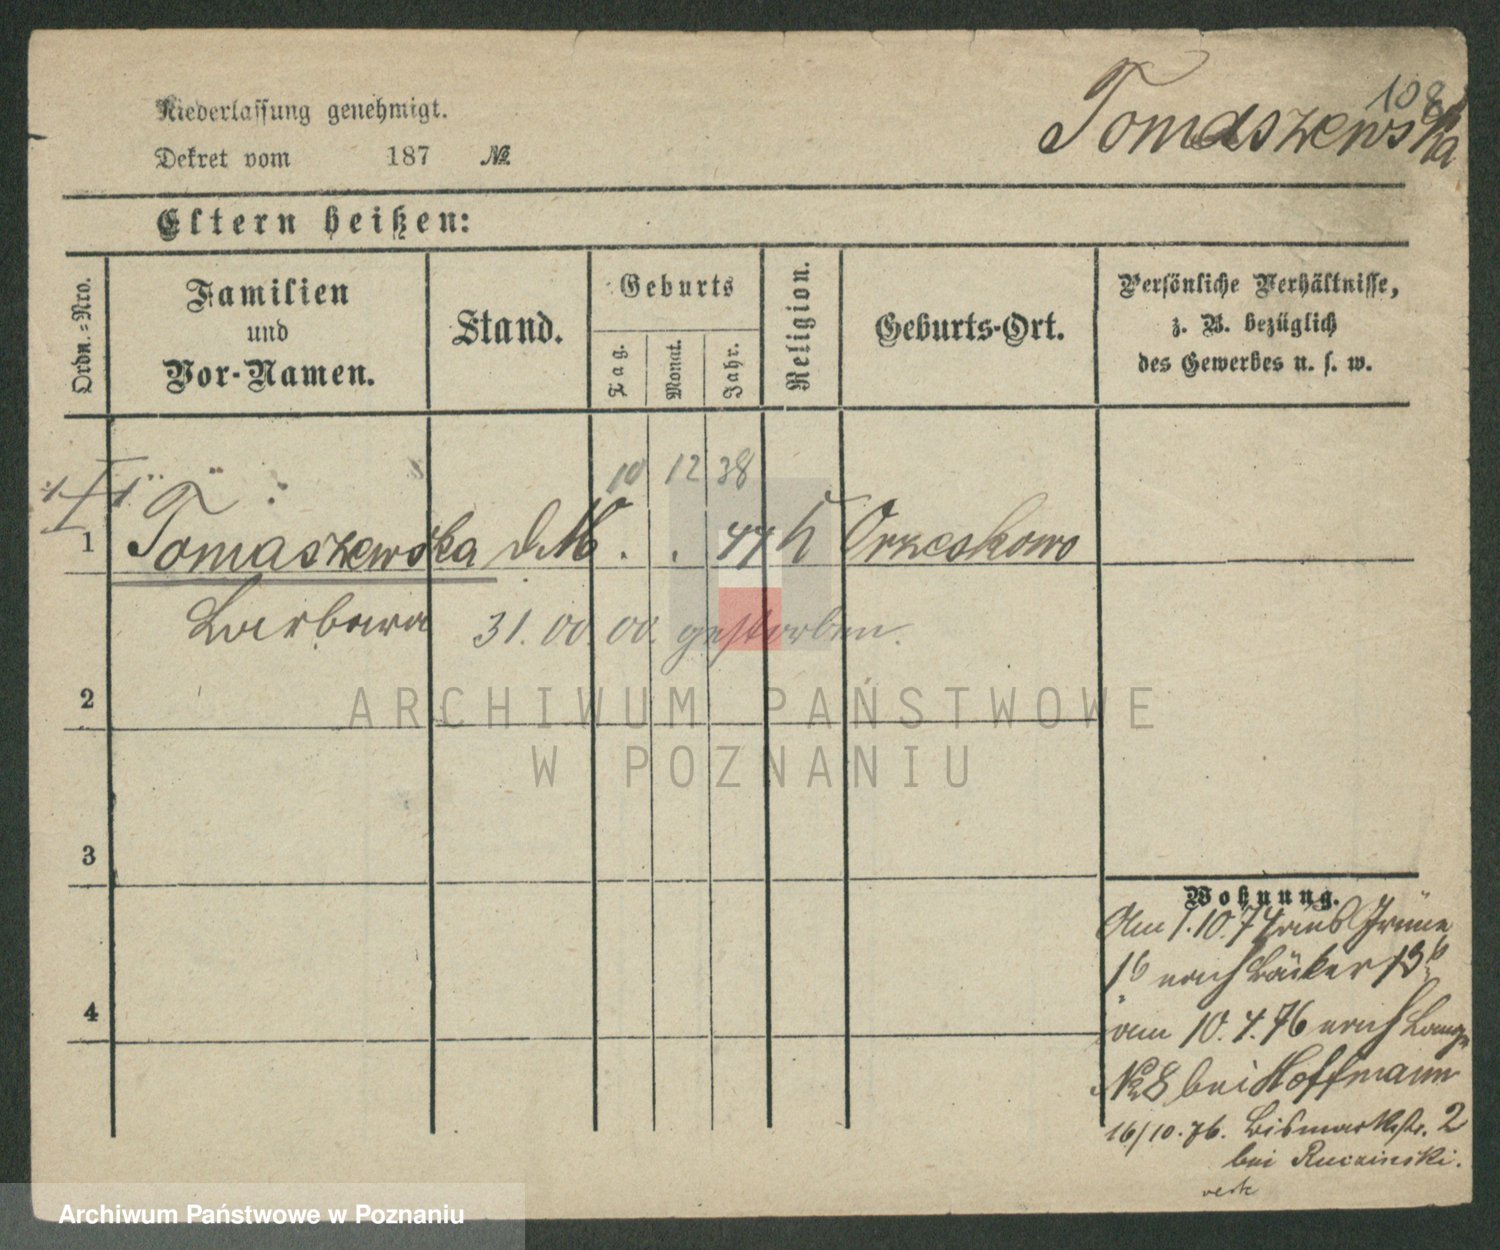 108
Tomaszewska
Niederlassung genehmigt.
Dekret vom 187 №
Eltern heißen:
Ordn.=Nro.
Familien
und
Vor-Namen.
Stand.
Geburts
Tag.
Monat.
Jahr.
Religion.
Geburts-Ort.
Persönliche Verhältnisse,
z. B. bezüglich
des Gewerbes u. s. w.
10 12 38
1 Tomaszewska d. M. . . 44 k Orzeskowo
Barbara 31. 00 00. gestorben.
2
3
4
Wohnung.
Am 1.10.74 aus Grüne
16 nach Bäcker 13b
am 10.4.76 nach Lange
№ 8 bei Hoffmann
16/10.76. Bismarckstr. 2
bei Rucainski.
ARCHIWUM PAŃSTWOWE
W POZNANIU
Archiwum Państwowe w Poznaniu